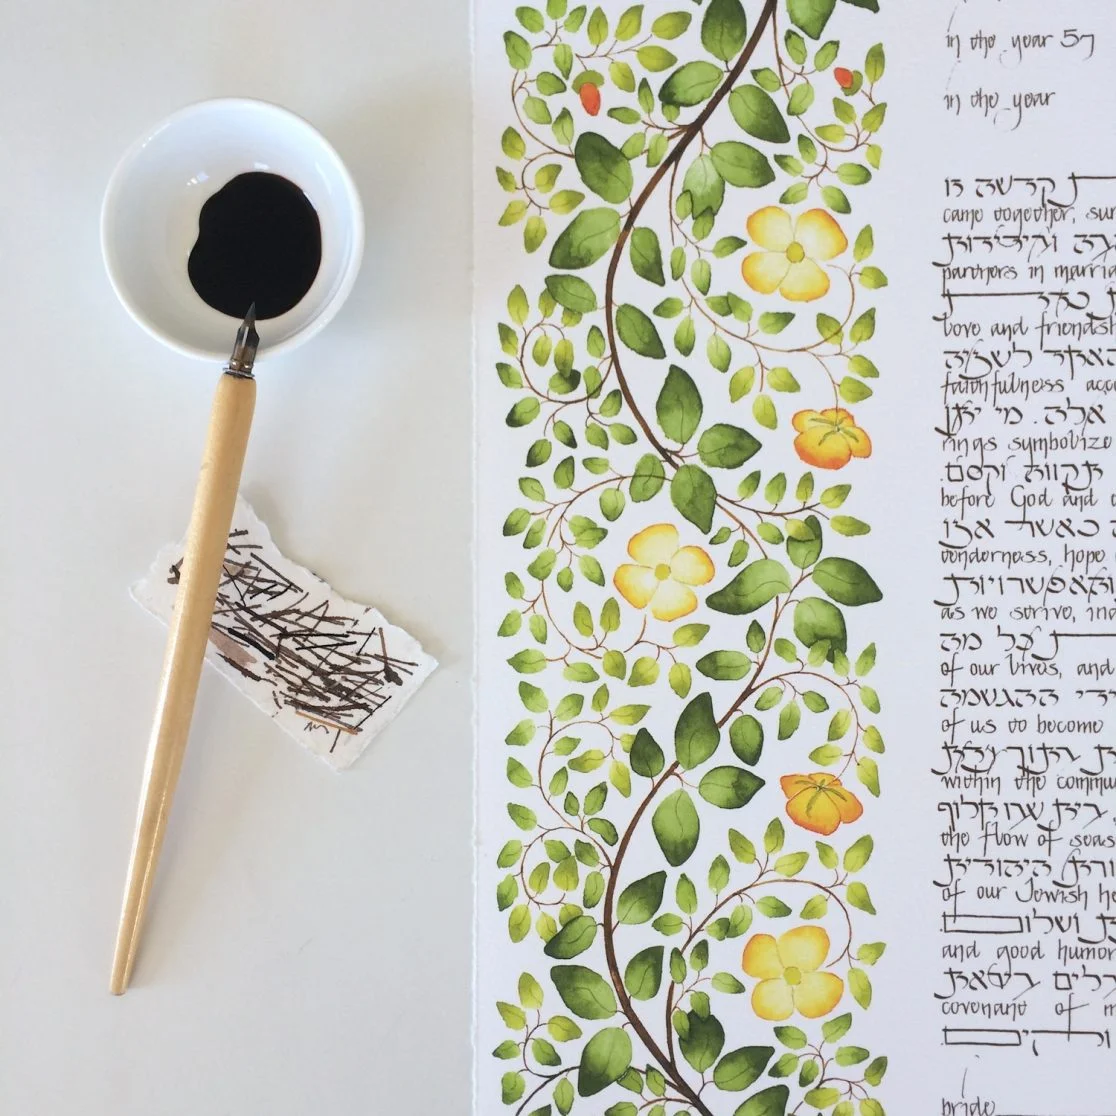 in the year 57
in the year
קדשה זו
came together, sur
וקיפידות
partners in marria
love and friendsh
האחד לשניה
faithfulness acco
אלה. מי יתן
rings symbolize
תקווה וקסם.
before God and
כאשר אנו
tenderness, hope
והאפשרויות
as we strive, inc
כל מה
of our lives, and
ההגשמה
of us to become
within the commu
the flow of seas
היהודית
of our Jewish he
ושלום
and good humor
covenant of m
וקים
bride